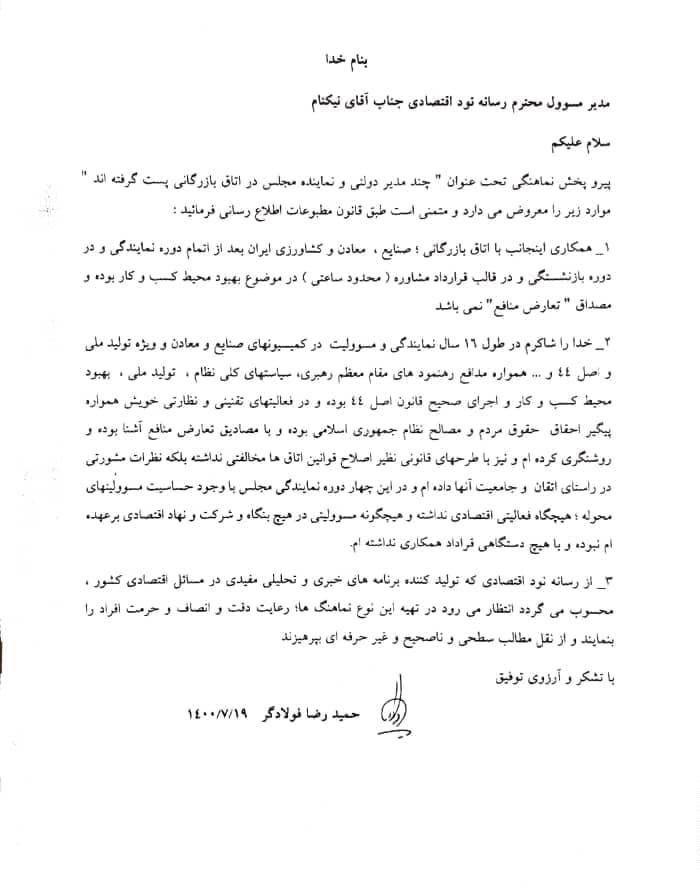 بنام خدا
مدیر مسوول محترم رسانه نود اقتصادی جناب آقای نیکنام
سلام علیکم
پیرو پخش نماهنگی تحت عنوان " چند مدیر دولتی و نماینده مجلس در اتاق بازرگانی پست گرفته اند "
موارد زیر را معروض می دارد و متمنی است طبق قانون مطبوعات اطلاع رسانی فرمائید :
۱_ همکاری اینجانب با اتاق بازرگانی ؛ صنایع ، معادن و کشاورزی ایران بعد از اتمام دوره نمایندگی و در
دوره بازنشستگی و در قالب قرارداد مشاوره ( محدود ساعتی ) در موضوع بهبود محیط کسب و کار بوده و
مصداق " تعارض منافع" نمی باشد
۲_ خدا را شاکرم در طول ۱۶ سال نمایندگی و مسوولیت در کمیسیونهای صنایع و معادن و ویژه تولید ملی
و اصل ٤٤ و ... همواره مدافع رهنمود های مقام معظم رهبری، سیاستهای کلی نظام ، تولید ملی ، بهبود
محیط کسب و کار و اجرای صحیح قانون اصل ٤٤ بوده و در فعالیتهای تقنینی و نظارتی خویش همواره
پیگیر احقاق حقوق مردم و مصالح نظام جمهوری اسلامی بوده و با مصادیق تعارض منافع آشنا بوده و
روشنگری کرده ام و نیز با طرحهای قانونی نظیر اصلاح قوانین اتاق ها مخالفتی نداشته بلکه نظرات مشورتی
در راستای اتقان و جامعیت آنها داده ام و در این چهار دوره نمایندگی مجلس با وجود حساسیت مسوولیتهای
محوله ؛ هیچگاه فعالیتی اقتصادی نداشته و هیچگونه مسوولیتی در هیچ بنگاه و شرکت و نهاد اقتصادی برعهده
ام نبوده و با هیچ دستگاهی قراداد همکاری نداشته ام.
۳_ از رسانه نود اقتصادی که تولید کننده برنامه های خبری و تحلیلی مفیدی در مسائل اقتصادی کشور ،
محسوب می گردد انتظار می رود در تهیه این نوع نماهنگ ها؛ رعایت دقت و انصاف و حرمت افراد را
بنمایند و از نقل مطالب سطحی و ناصحیح و غیر حرفه ای بپرهیزند
با تشکر و آرزوی توفیق
حمید رضا فولادگر ۱٤۰۰/۷/۱۹